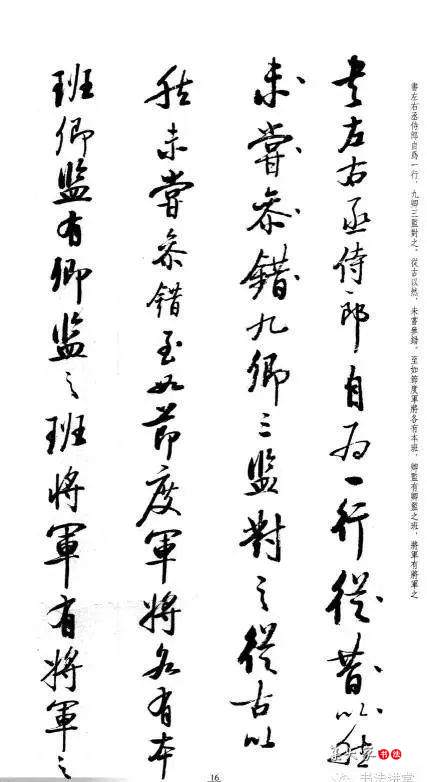 書左右丞侍郎自爲一行，九卿三監對之。從古以然，未嘗參錯。至如節度軍將各有本班，卿監有卿監之班，將軍有將軍之
書左右丞侍郎自為一行從昔以然
未嘗參錯九卿三監對之從古以
然未嘗參錯至如節度軍將各有本
班卿監有卿監之班將軍有將軍之
16
书法
书法讲堂